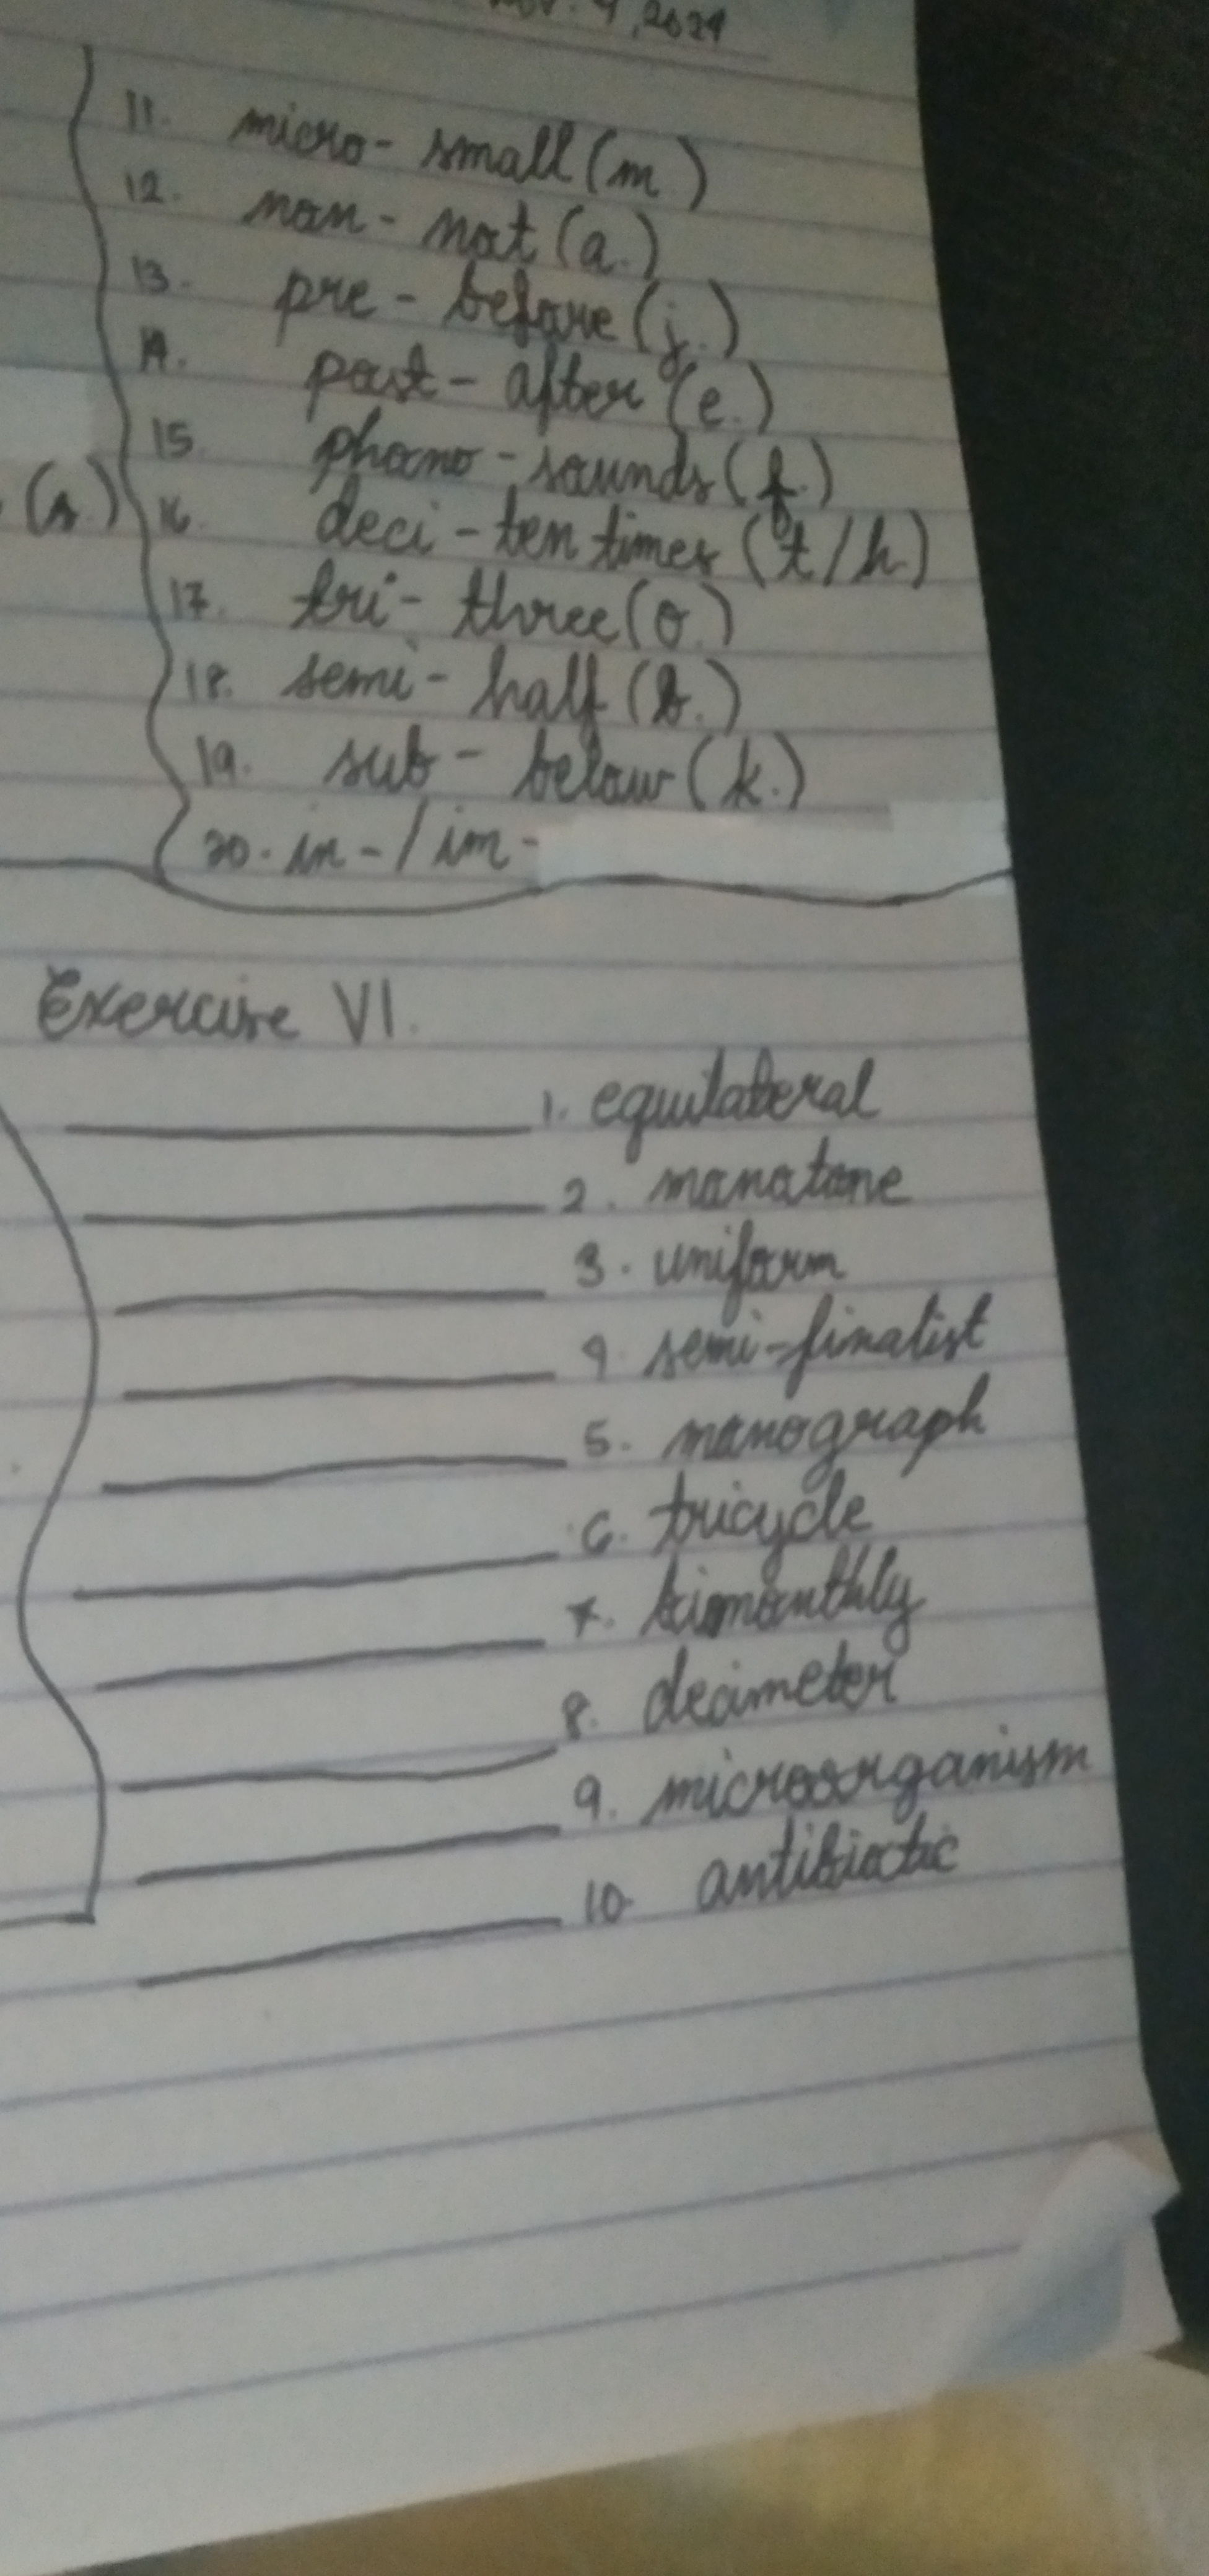 Nov. 9, 2024
11. micro - small (m.)
12. non - not (a.)
13. pre - before (j.)
14. post - after (e.)
15. phono - sounds (f.)
(s.)
16. deci - ten times (t/h.)
17. tri - three (o.)
18. semi - half (b.)
19. sub - below (k.)
20. in - / im -
Exercise VI.
1. equilateral
2. monotone
3. uniform
4. semi-finalist
5. monograph
6. tricycle
7. bimonthly
8. decimeter
9. microorganism
10. antibiotic